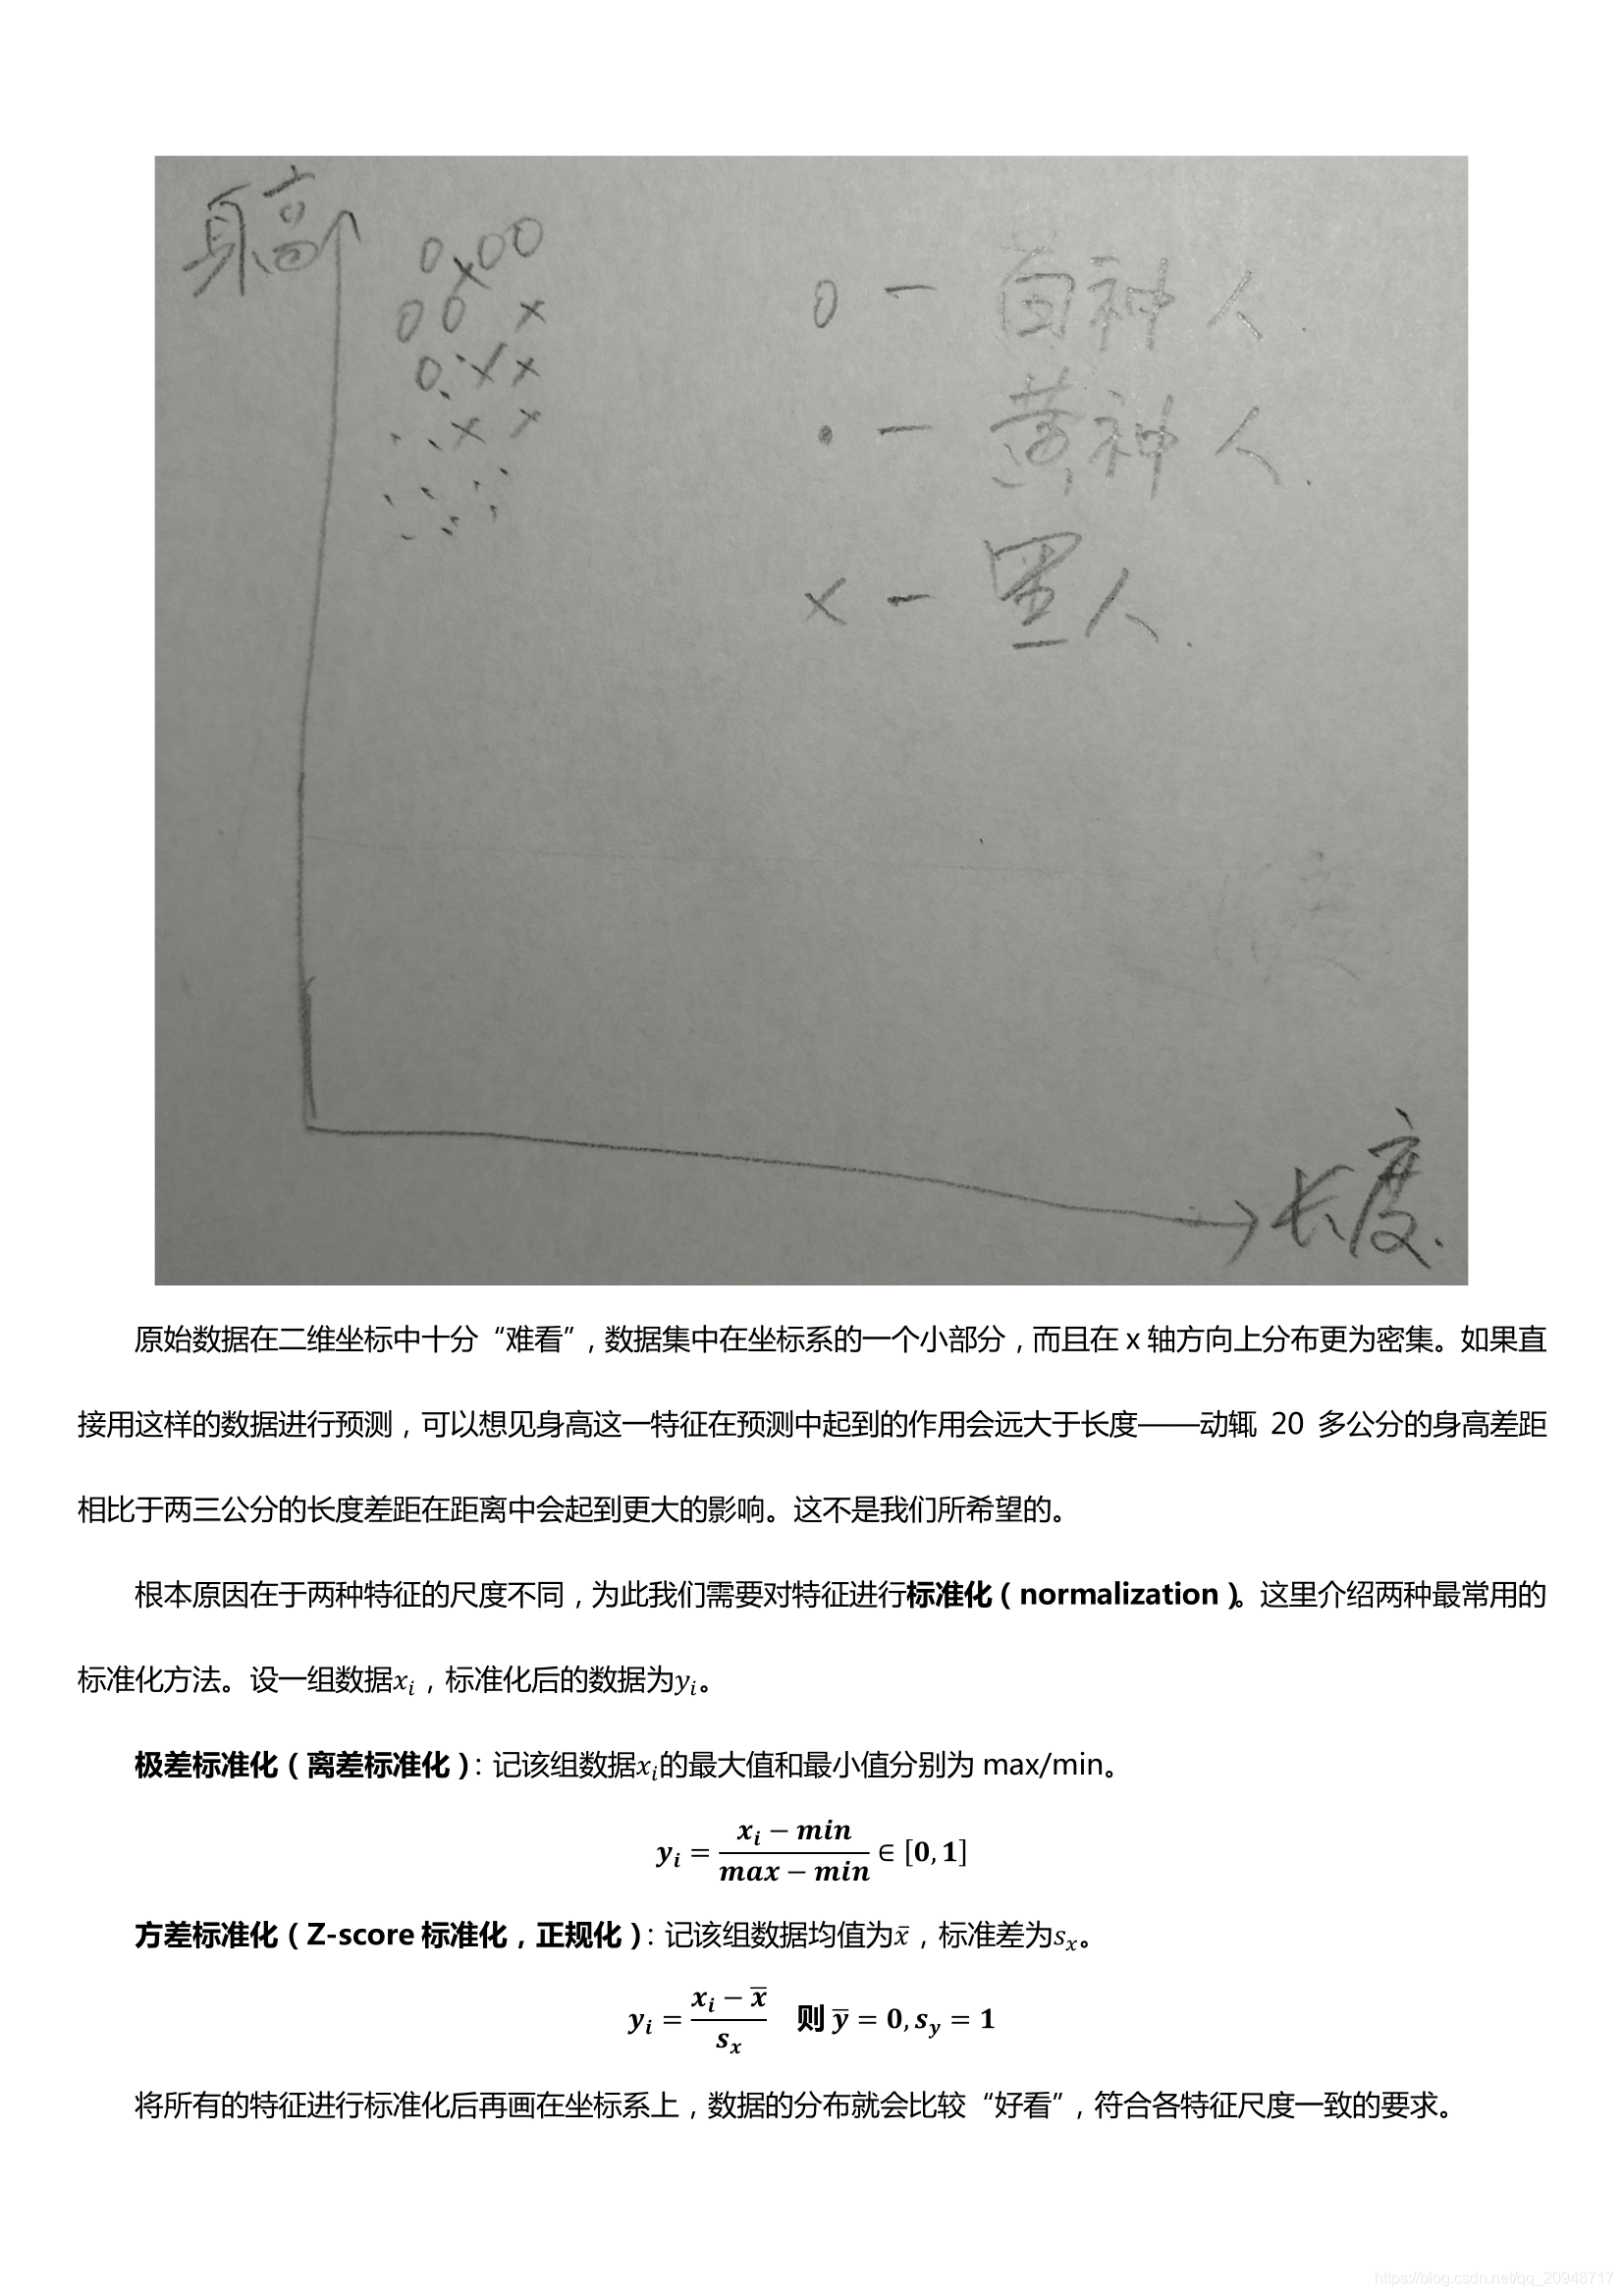 身高
o — 白种人.
• — 黄种人.
x — 黑人.
长度.
原始数据在二维坐标中十分“难看”，数据集中在坐标系的一个小部分，而且在 x 轴方向上分布更为密集。如果直
接用这样的数据进行预测，可以想见身高这一特征在预测中起到的作用会远大于长度——动辄 20 多公分的身高差距
相比于两三公分的长度差距在距离中会起到更大的影响。这不是我们所希望的。
根本原因在于两种特征的尺度不同，为此我们需要对特征进行标准化（normalization）。这里介绍两种最常用的
标准化方法。设一组数据xᵢ，标准化后的数据为yᵢ。
极差标准化（离差标准化）：记该组数据xᵢ的最大值和最小值分别为 max/min。
yᵢ = (xᵢ − min)/(max − min) ∈ [0, 1]
方差标准化（Z-score 标准化，正规化）：记该组数据均值为x̄，标准差为sₓ。
yᵢ = (xᵢ − x̄)/sₓ 则 ȳ = 0, s_y = 1
将所有的特征进行标准化后再画在坐标系上，数据的分布就会比较“好看”，符合各特征尺度一致的要求。
https://blog.csdn.net/qq_20948717